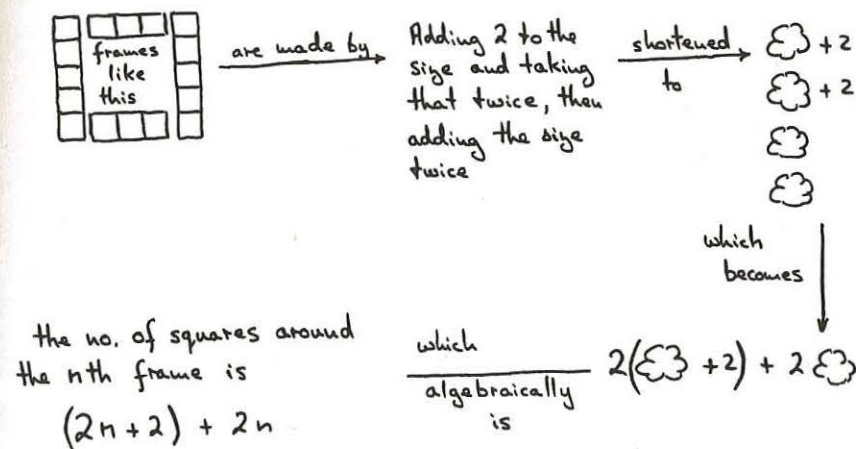 frames
like
this
are made by
Adding 2 to the
size and taking
that twice, then
adding the size
twice
shortened
to
+ 2
+ 2
which
becomes
2( + 2) + 2
which
algebraically
is
the no. of squares around
the nth frame is
(2n + 2) + 2n